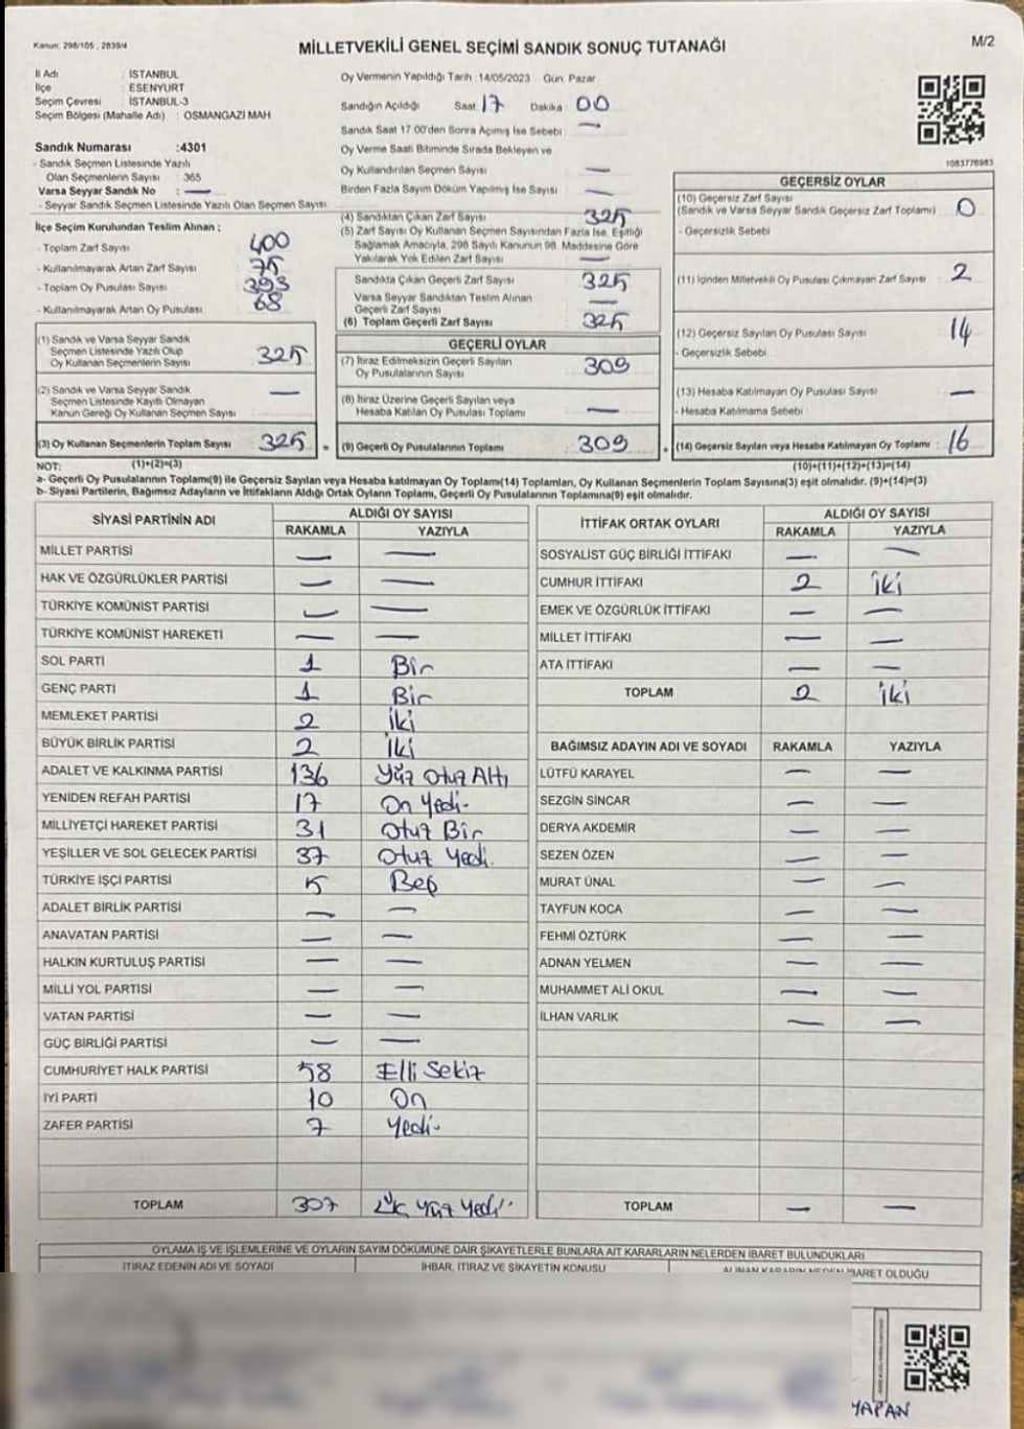 Kanun: 298/105 , 2839/4
MİLLETVEKİLİ GENEL SEÇİMİ SANDIK SONUÇ TUTANAĞI
M/2
İl Adı : İSTANBUL
İlçe : ESENYURT
Seçim Çevresi : İSTANBUL-3
Seçim Bölgesi (Mahalle Adı) : OSMANGAZİ MAH
Sandık Numarası :4301
- Sandık Seçmen Listesinde Yazılı
Olan Seçmenlerin Sayısı : 365
Varsa Seyyar Sandık No : —
- Seyyar Sandık Seçmen Listesinde Yazılı Olan Seçmen Sayısı
İlçe Seçim Kurulundan Teslim Alınan ;
- Toplam Zarf Sayısı 400
- Kullanılmayarak Artan Zarf Sayısı 75
- Toplam Oy Pusulası Sayısı 393
- Kullanılmayarak Artan Oy Pusulası 68
(1) Sandık ve Varsa Seyyar Sandık
Seçmen Listesinde Yazılı Olup
Oy Kullanan Seçmenlerin Sayısı 325
(2) Sandık ve Varsa Seyyar Sandık
Seçmen Listesinde Kayıtlı Olmayan
Kanun Gereği Oy Kullanan Seçmen Sayısı —
(3) Oy Kullanan Seçmenlerin Toplam Sayısı 325
(1)+(2)=(3)
Oy Vermenin Yapıldığı Tarih :14/05/2023 Gün: Pazar
Sandığın Açıldığı Saat 17 Dakika 00
Sandık Saat 17:00'den Sonra Açılmış İse Sebebi : —
Oy Verme Saati Bitiminde Sırada Bekleyen ve
Oy Kullandırılan Seçmen Sayısı —
Birden Fazla Sayım Döküm Yapılmış İse Sayısı —
(4) Sandıktan Çıkan Zarf Sayısı 325
(5) Zarf Sayısı Oy Kullanan Seçmen Sayısından Fazla İse, Eşitliği
Sağlamak Amacıyla, 298 Sayılı Kanunun 98. Maddesine Göre
Yakılarak Yok Edilen Zarf Sayısı —
Sandıkta Çıkan Geçerli Zarf Sayısı 325
Varsa Seyyar Sandıktan Teslim Alınan
Geçerli Zarf Sayısı —
(6) Toplam Geçerli Zarf Sayısı 325
GEÇERLİ OYLAR
(7) İtiraz Edilmeksizin Geçerli Sayılan
Oy Pusulalarının Sayısı 309
(8) İtiraz Üzerine Geçerli Sayılan veya
Hesaba Katılan Oy Pusulası Toplamı —
= (9) Geçerli Oy Pusulalarının Toplamı 309
1083776983
GEÇERSİZ OYLAR
(10) Geçersiz Zarf Sayısı
(Sandık ve Varsa Seyyar Sandık Geçersiz Zarf Toplamı) 0
- Geçersizlik Sebebi
(11) İçinden Milletvekili Oy Pusulası Çıkmayan Zarf Sayısı 2
(12) Geçersiz Sayılan Oy Pusulası Sayısı 14
- Geçersizlik Sebebi
(13) Hesaba Katılmayan Oy Pusulası Sayısı —
- Hesaba Katılmama Sebebi
+ (14) Geçersiz Sayılan veya Hesaba Katılmayan Oy Toplamı : 16
(10)+(11)+(12)+(13)=(14)
NOT:
a- Geçerli Oy Pusulalarının Toplamı(9) ile Geçersiz Sayılan veya Hesaba katılmayan Oy Toplam(14) Toplamları, Oy Kullanan Seçmenlerin Toplam Sayısına(3) eşit olmalıdır. (9)+(14)=(3)
b- Siyasi Partilerin, Bağımsız Adayların ve İttifakların Aldığı Ortak Oyların Toplamı, Geçerli Oy Pusulalarının Toplamına(9) eşit olmalıdır.
SİYASİ PARTİNİN ADI ALDIĞI OY SAYISI
RAKAMLA YAZIYLA
MİLLET PARTİSİ — —
HAK VE ÖZGÜRLÜKLER PARTİSİ — —
TÜRKİYE KOMÜNİST PARTİSİ — —
TÜRKİYE KOMÜNİST HAREKETİ — —
SOL PARTİ 1 Bir
GENÇ PARTİ 1 Bir
MEMLEKET PARTİSİ 2 İki
BÜYÜK BİRLİK PARTİSİ 2 İki
ADALET VE KALKINMA PARTİSİ 136 Yüz Otuz Altı
YENİDEN REFAH PARTİSİ 17 On Yedi-
MİLLİYETÇİ HAREKET PARTİSİ 31 Otuz Bir
YEŞİLLER VE SOL GELECEK PARTİSİ 37 Otuz Yedi.
TÜRKİYE İŞÇİ PARTİSİ 5 Beş
ADALET BİRLİK PARTİSİ — —
ANAVATAN PARTİSİ — —
HALKIN KURTULUŞ PARTİSİ — —
MİLLİ YOL PARTİSİ — —
VATAN PARTİSİ — —
GÜÇ BİRLİĞİ PARTİSİ — —
CUMHURİYET HALK PARTİSİ 58 Elli Sekiz
İYİ PARTİ 10 On
ZAFER PARTİSİ 7 Yedi-
TOPLAM 307 Üç Yüz Yedi
İTTİFAK ORTAK OYLARI ALDIĞI OY SAYISI
RAKAMLA YAZIYLA
SOSYALİST GÜÇ BİRLİĞİ İTTİFAKI — —
CUMHUR İTTİFAKI 2 İki
EMEK VE ÖZGÜRLÜK İTTİFAKI — —
MİLLET İTTİFAKI — —
ATA İTTİFAKI — —
TOPLAM 2 İki
BAĞIMSIZ ADAYIN ADI VE SOYADI RAKAMLA YAZIYLA
LÜTFÜ KARAYEL — —
SEZGİN SİNCAR — —
DERYA AKDEMİR — —
SEZEN ÖZEN — —
MURAT ÜNAL — —
TAYFUN KOCA — —
FEHMİ ÖZTÜRK — —
ADNAN YELMEN — —
MUHAMMET ALİ OKUL — —
İLHAN VARLIK — —
TOPLAM — —
OYLAMA İŞ VE İŞLEMLERİNE VE OYLARIN SAYIM DÖKÜMÜNE DAİR ŞİKAYETLERLE BUNLARA AİT KARARLARIN NELERDEN İBARET BULUNDUKLARI
İTİRAZ EDENİN ADI VE SOYADI İHBAR, İTİRAZ VE ŞİKAYETİN KONUSU ALINAN KARARIN NEDEN İBARET OLDUĞU
YAPAN